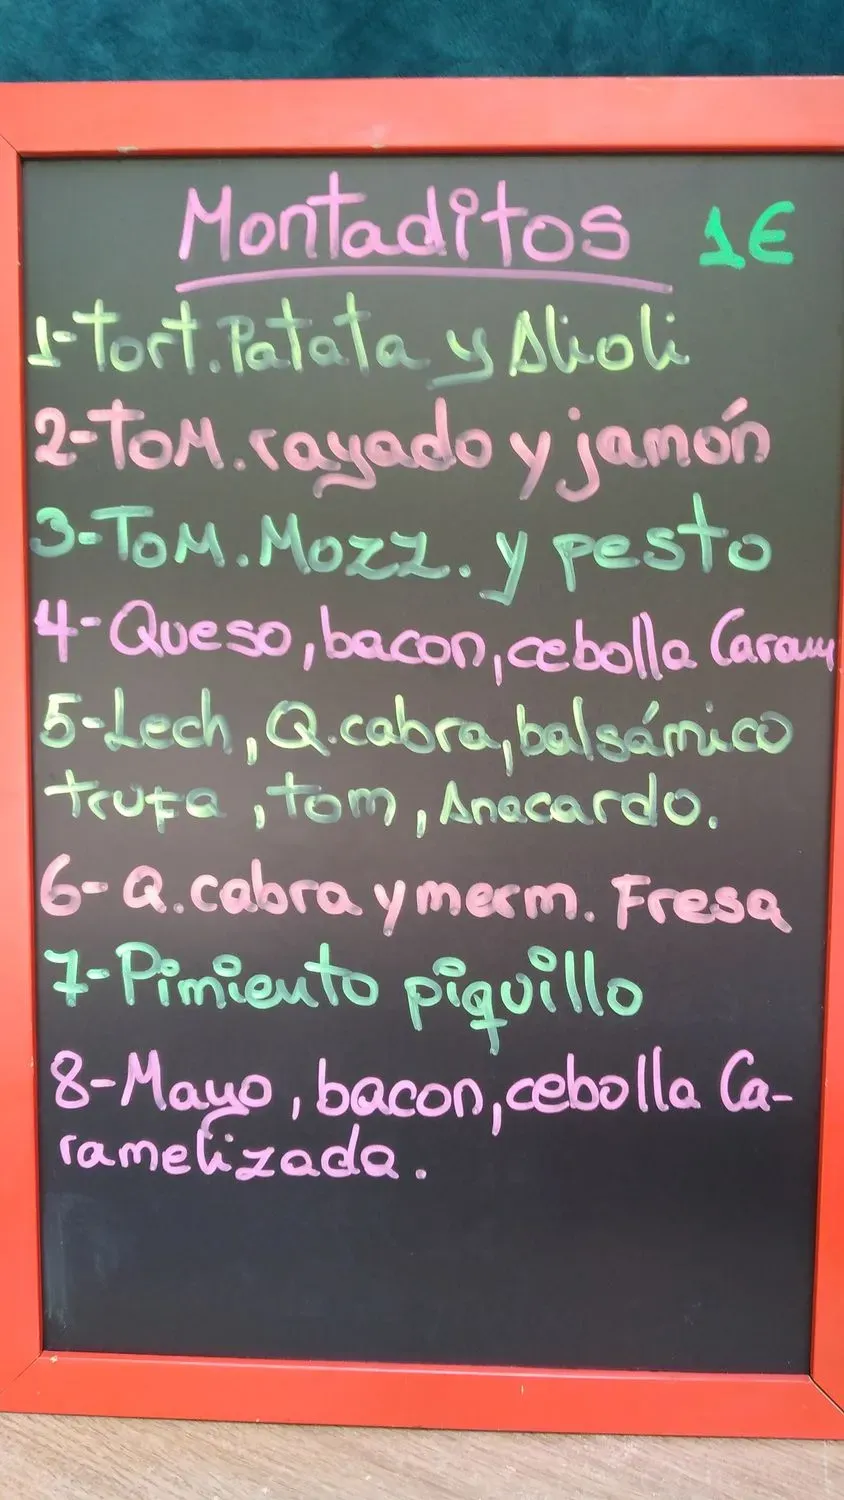 Montaditos 1€
1-Tort.Patata y Alioli
2-ToM.rayado y jamón
3-ToM.Mozz. y pesto
4-Queso, bacon, cebolla Caram
5-Lech, Q.cabra, balsámico
trufa, tom, Anacardo.
6-Q.cabra y merm. Fresa
7-Pimiento piquillo
8-Mayo, bacon, cebolla Ca-
ramelizada.